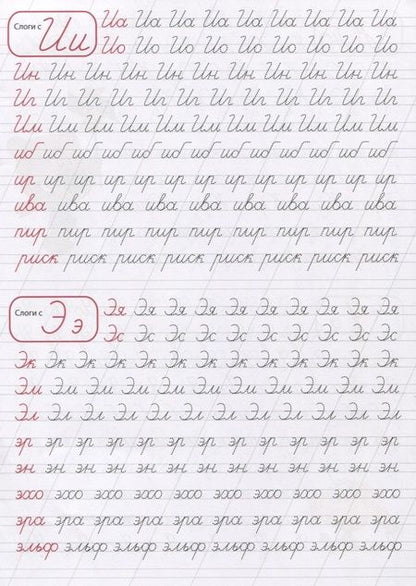 Слоги с Ии
Иа Иа Иа Иа Иа Иа Иа Иа Иа
Ио Ио Ио Ио Ио Ио Ио Ио Ио
Ин Ин Ин Ин Ин Ин Ин Ин Ин Ин Ин
Иг Иг Иг Иг Иг Иг Иг Иг Иг Иг Иг
Им Им Им Им Им Им Им Им Им Им
иб иб иб иб иб иб иб иб иб иб иб иб
ир ир ир ир ир ир ир ир ир ир ир ир
ива ива ива ива ива ива ива ива ива
пир пир пир пир пир пир пир пир пир
риск риск риск риск риск риск риск риск
Слоги с Ээ
Эя Эя Эя Эя Эя Эя Эя Эя Эя
Эс Эс Эс Эс Эс Эс Эс Эс Эс
Эк Эк Эк Эк Эк Эк Эк Эк Эк Эк Эк Эк
Эм Эм Эм Эм Эм Эм Эм Эм Эм Эм
Эл Эл Эл Эл Эл Эл Эл Эл Эл Эл Эл
эр эр эр эр эр эр эр эр эр эр эр эр
эн эн эн эн эн эн эн эн эн эн эн
эхо эхо эхо эхо эхо эхо эхо эхо эхо
эра эра эра эра эра эра эра эра эра
эльф эльф эльф эльф эльф эльф эльф эльф